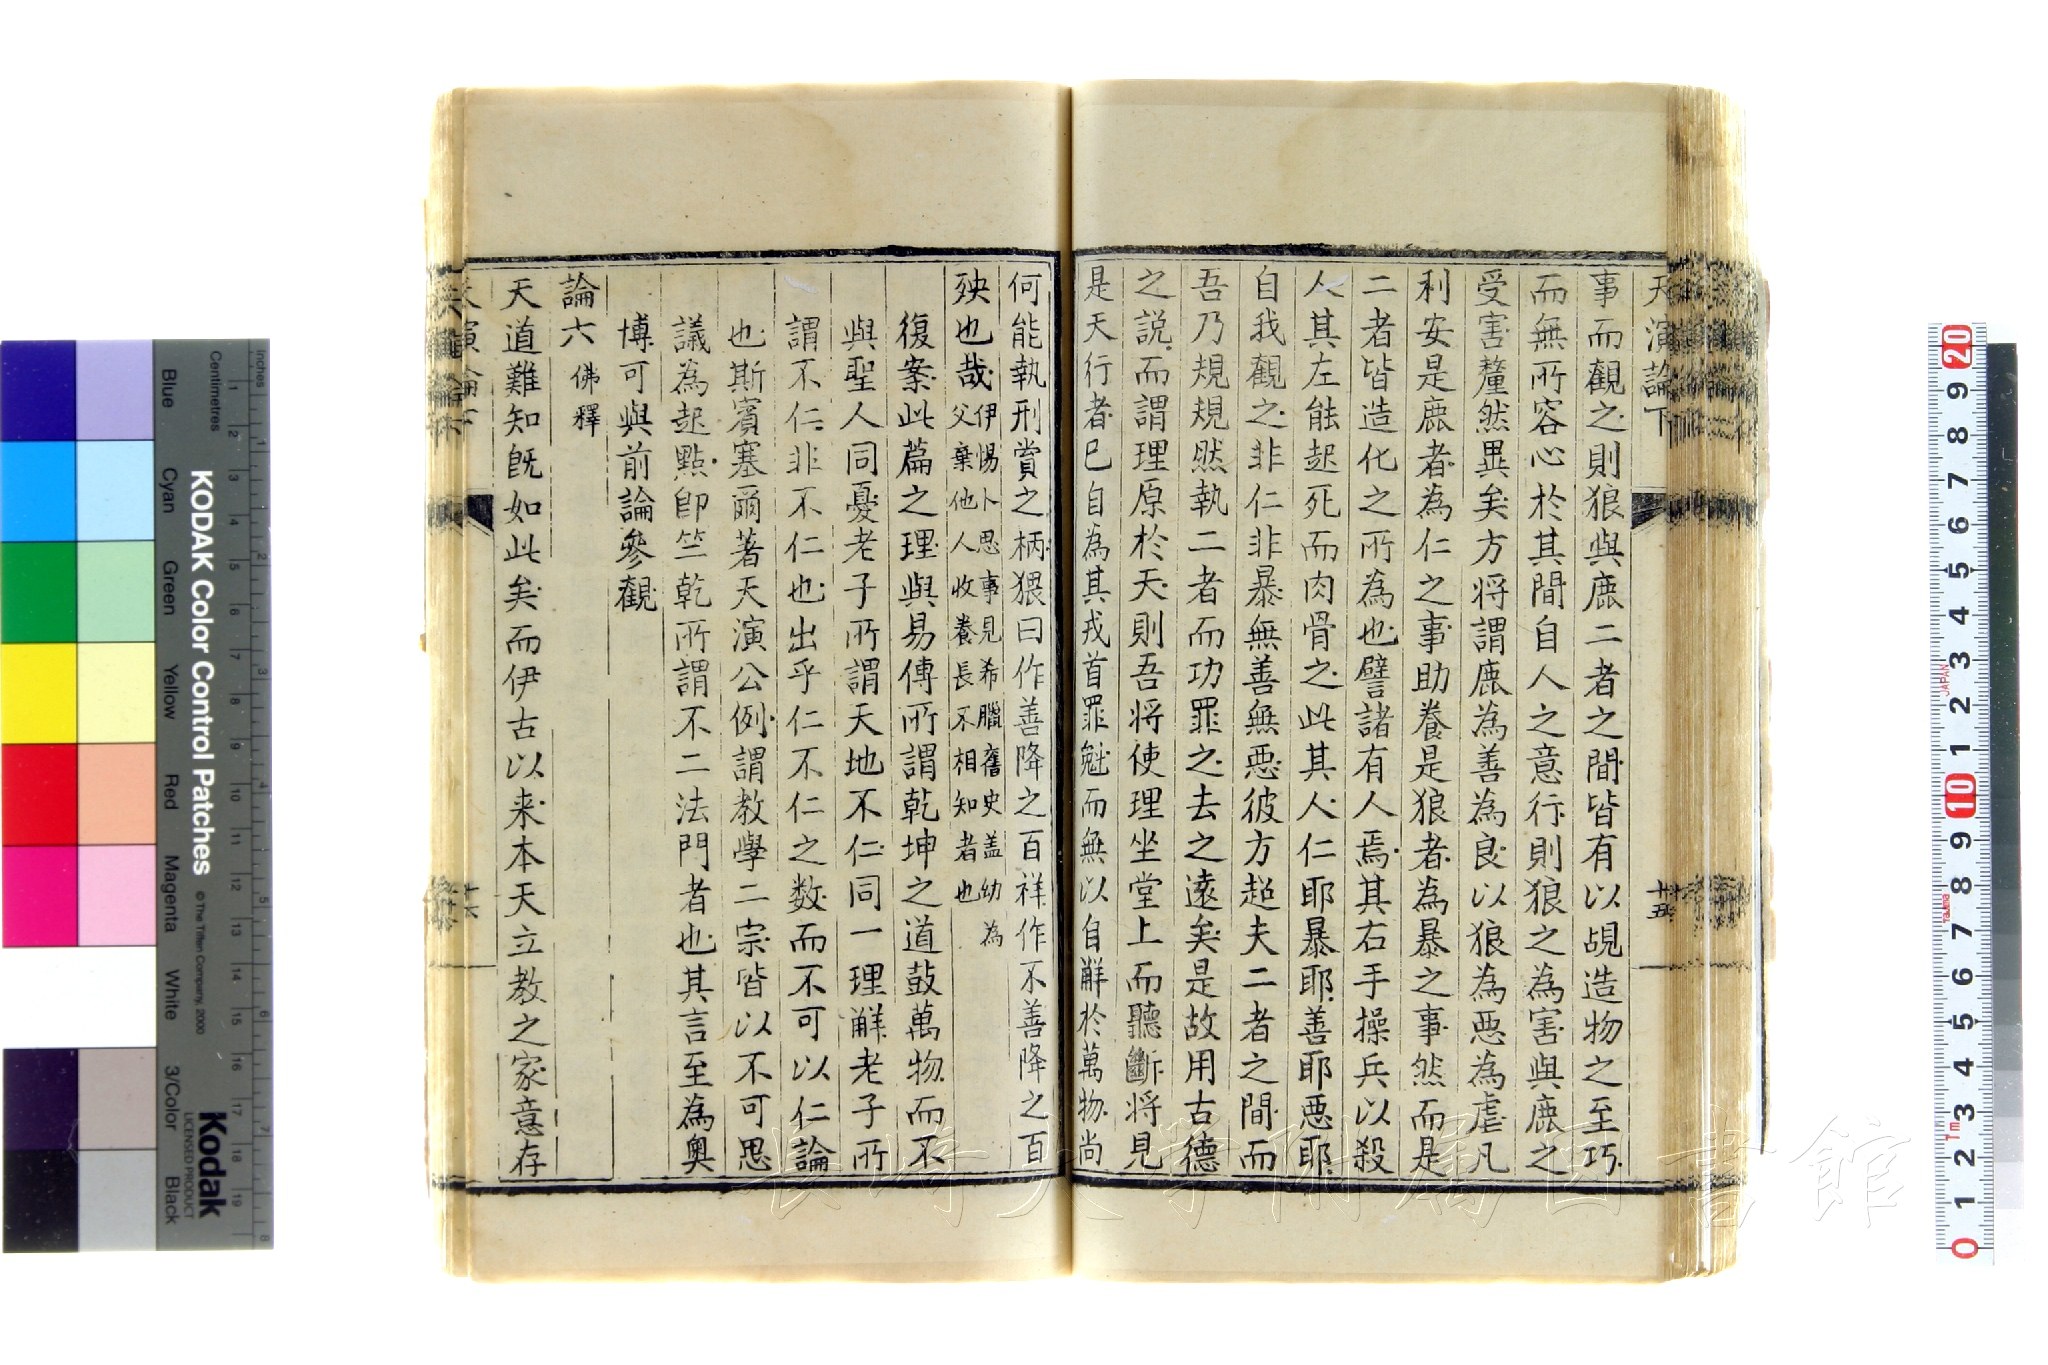 天演論下
十五
事而觀之則狼與鹿二者之間皆有以覘造物之至巧
而無所容心於其間自人之意行則狼之為害與鹿之
受害釐然異矣方將謂鹿為善為良以狼為惡為虐凡
利安是鹿者為仁之事助養是狼者為暴之事然而是
二者皆造化之所為也譬諸有人焉其右手操兵以殺
人其左能起死而肉骨之此其人仁耶暴耶善耶惡耶
自我觀之非仁非暴無善無惡彼方超夫二者之間而
吾乃規規然執二者而功罪之去之遠矣是故用古德
之説而謂理原於天則吾將使理坐堂上而聽斷將見
是天行者已自為其戎首罪魁而無以自解於萬物尚
何能執刑賞之柄猥曰作善降之百祥作不善降之百
殃也哉伊惕卜思事見希臘舊史盖幼為
父棄他人收養長不相知者也
復案此篇之理與易傳所謂乾坤之道鼓萬物而不
與聖人同憂老子所謂天地不仁同一理解老子所
謂不仁非不仁也出乎仁不仁之数而不可以仁論
也斯賓塞爾著天演公例謂教學二宗皆以不可思
議為起點即竺乾所謂不二法門者也其言至為奧
博可與前論參觀
論六 佛釋
天道難知既如此矣而伊古以来本天立教之家意存
天演論下
十六
KODAK Color Control Patches
© The Tiffen Company, 2000
Kodak
LICENSED PRODUCT
Inches
Centimetres
Blue
Cyan
Green
Yellow
Red
Magenta
White
3/Color
Black
長崎大学附属図書館